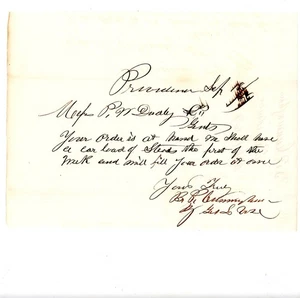 Providence Sep
Messrs P. W. Dudley & Co
Gents
Your order is at hand We shall have
a car load of the first of the
week and will fill your order at once
Yours Truly
B. F.
By Geo S